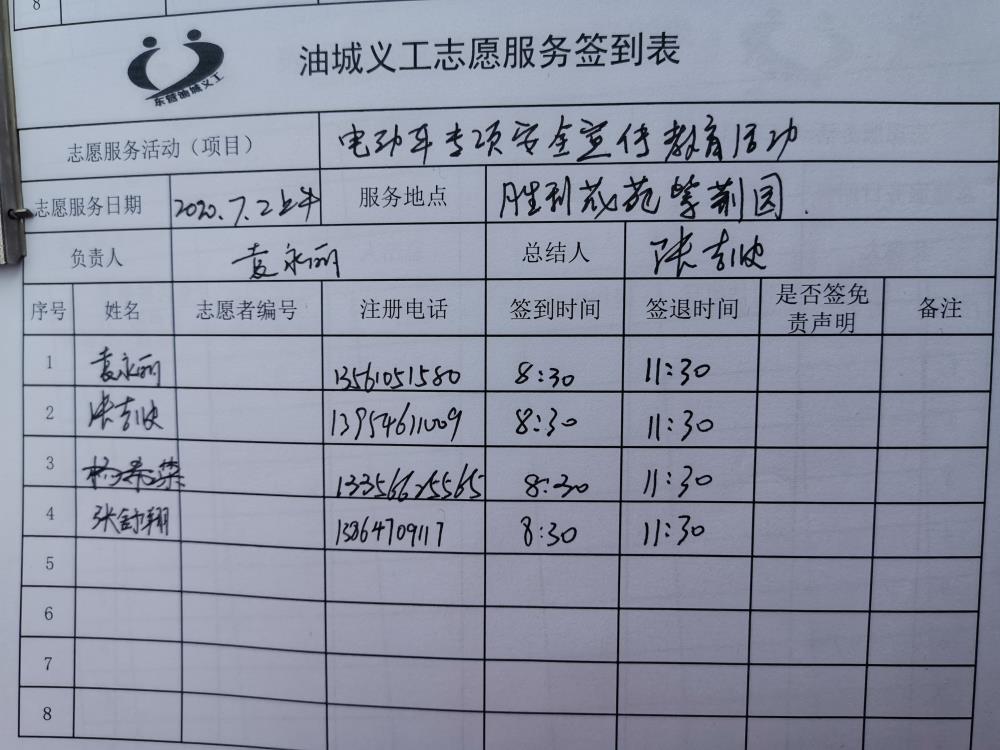 8
东营油城义工
油城义工志愿服务签到表
志愿服务活动（项目） 电动车专项安全宣传教育活动
志愿服务日期 2020.7.2上午 服务地点 胜利茂苑紫荆园.
负责人 袁永丽 总结人 张吉忠
序号 姓名 志愿者编号 注册电话 签到时间 签退时间 是否签免责声明 备注
1 袁永丽 13561051580 8:30 11:30
2 13954611009 8:30 11:30
3 13356625565 8:30 11:30
4 张舒翔 13864709117 8:30 11:30
5
6
7
8